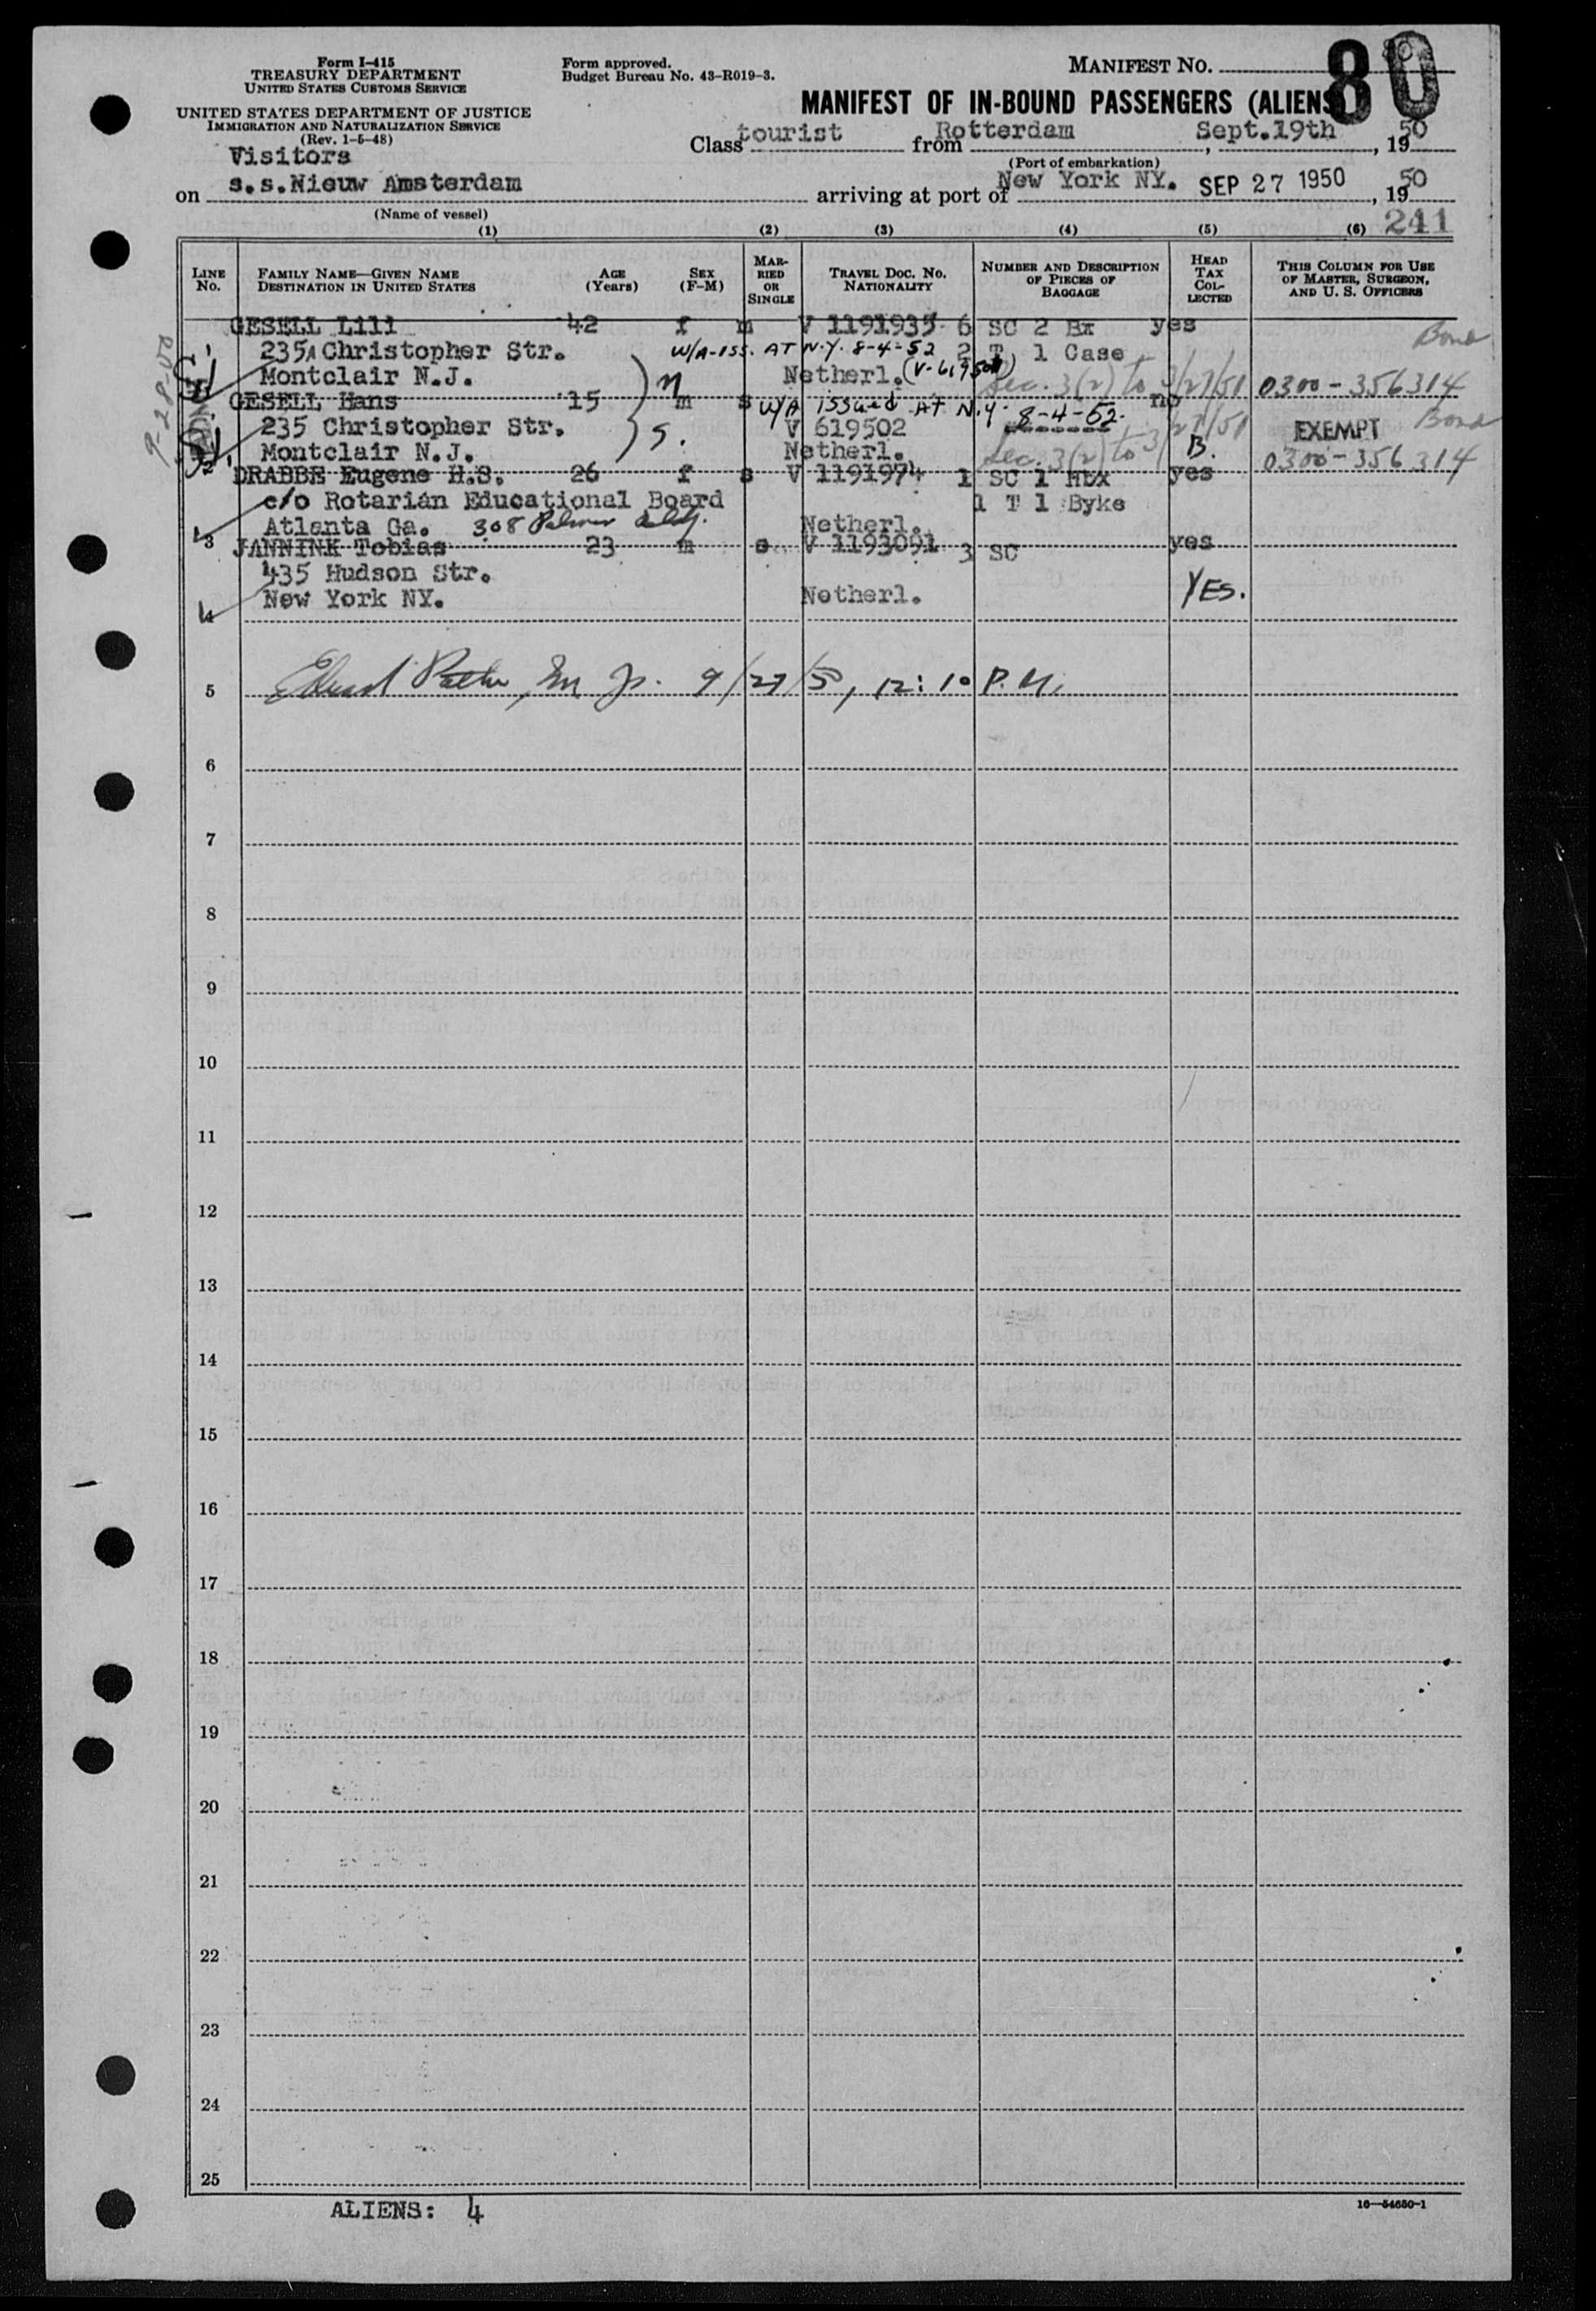 Form I-415
TREASURY DEPARTMENT
UNITED STATES CUSTOMS SERVICE
UNITED STATES DEPARTMENT OF JUSTICE
IMMIGRATION AND NATURALIZATION SERVICE
(Rev. 1-5-48)
Form approved.
Budget Bureau No. 43-R019-3.
MANIFEST NO.
80
MANIFEST OF IN-BOUND PASSENGERS (ALIENS)
Class tourist from Rotterdam, Sept.19th, 1950
(Port of embarkation)
Visitors
on s.s.Nieuw Amsterdam arriving at port of New York NY. SEP 27 1950, 1950
(Name of vessel)
241
(1) (2) (3) (4) (5) (6)
LINE NO.
FAMILY NAME—GIVEN NAME
DESTINATION IN UNITED STATES
AGE (Years)
SEX (F-M)
MARRIED OR SINGLE
TRAVEL DOC. NO.
NATIONALITY
NUMBER AND DESCRIPTION OF PIECES OF BAGGAGE
HEAD TAX COLLECTED
THIS COLUMN FOR USE OF MASTER, SURGEON, AND U. S. OFFICERS
GESELL Lili 42 f m V 1191935 6 SC 2 Bx yes
Bond
235 Christopher Str. W/A-iss. AT N.Y. 8-4-52 2 T 1 Case
1 Montclair N.J. M Netherl. Sec. 3(2) to 3/27/51 0300-356314
GESELL Hans 15 m s W/A issued AT N.Y. 8-4-52. no
Bond
235 Christopher Str. S. V 619502 27/51 EXEMPT
2 Montclair N.J. Netherl. Sec. 3(2) to 3/ B. 0300-356314
DRABBE Eugene H.S. 26 f s V 1191974 1 SC 1 Hbx yes
c/o Rotarian Educational Board 1 T 1 Byke
3 Atlanta Ga. 308 Palmer Bldg. Netherl.
JANNINK Tobias 23 m s V 1193091 3 SC yes
435 Hudson Str.
4 New York NY. Netherl. YES.
5 9/27/50, 12:10 P.M.
6
7
8
9
10
11
12
13
14
15
16
17
18
19
20
21
22
23
24
25
ALIENS: 4
16—54650-1